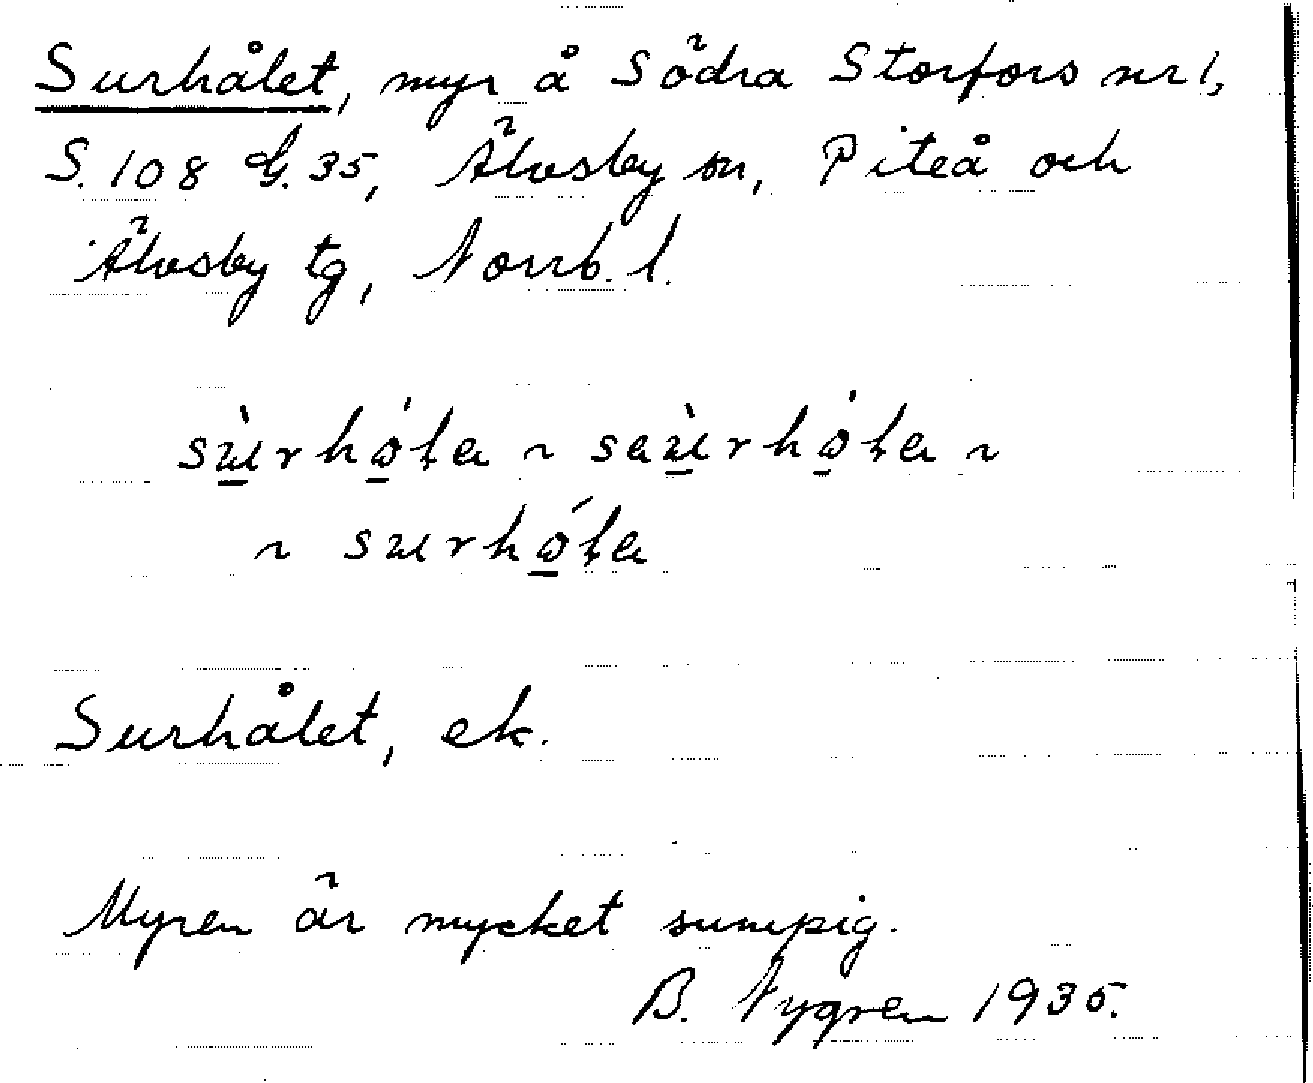 Surhålet, myr å Södra Storfors nr 1,
S. 108 G. 35, Älvsby sn, Piteå och
Älvsby tg, Norrb. l.
Surhålet, ek.
Myren är mycket sumpig.
B. Nygren 1935.